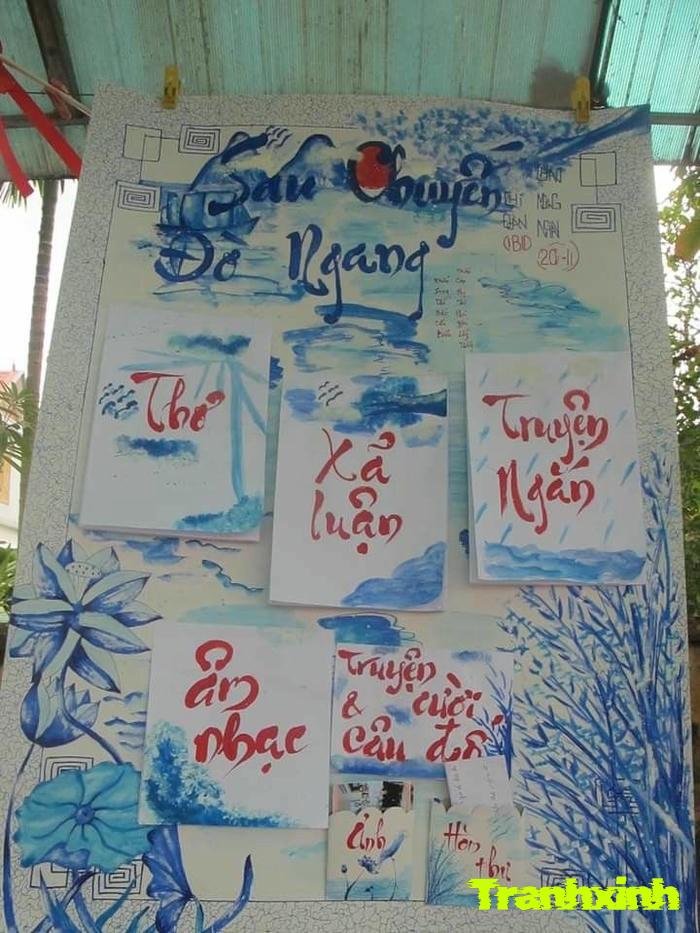 Sau Chuyến
Đò Ngang
20-11
Thơ
Xả
luận
Truyện
Ngắn
âm
nhạc
Truyện
& cười
câu đố
Ảnh
Hòm
thư
Tranhxinh